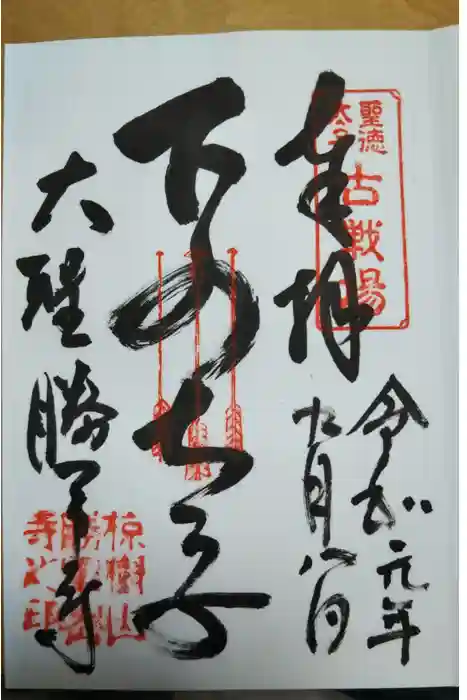 聖徳
太子
古戦場
奉拝
令和元年
九月八日
下の太子
大聖勝軍寺
椋樹山
寺之印